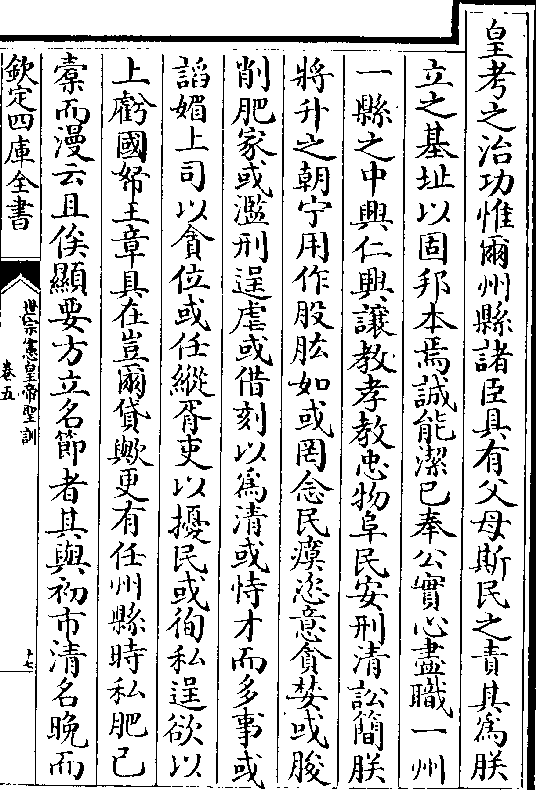 皇考之治功惟爾州縣諸臣具有父母斯民之責其為朕
立之基址以固邦本焉誠能潔已奉公實心盡職一州
一縣之中興仁興讓教孝教忠物阜民安刑清訟簡朕
將升之朝宁用作股肱如或罔念民瘼恣意貪婪或朘
削肥家或濫刑逞虐或借刻以為清或恃才而多事或
謟媚上司以貪位或任縱胥吏以擾民或徇私逞欲以
上虧國帑王章具在豈爾貸歟更有任州縣時私肥已
橐而漫云且俟顯要方立名節者其與初市清名晚而
欽定四庫全書
世宗憲皇帝聖訓
卷五
十七